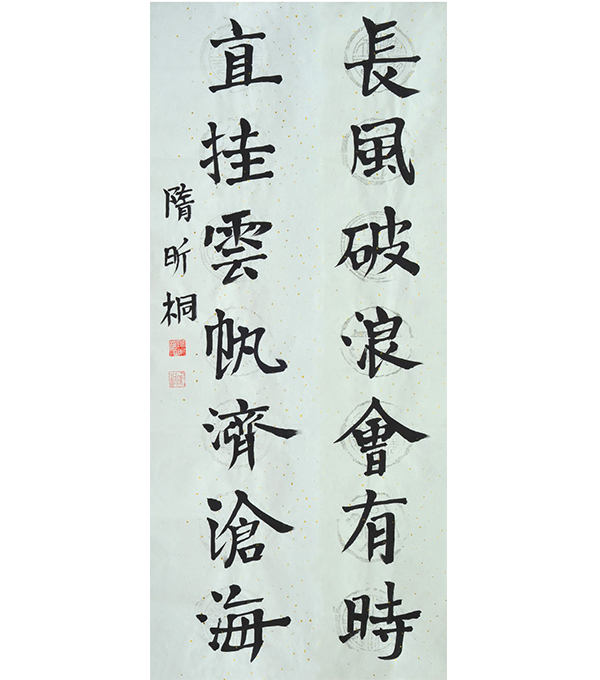 長風破浪會有時
直挂雲帆濟滄海
隋昕桐